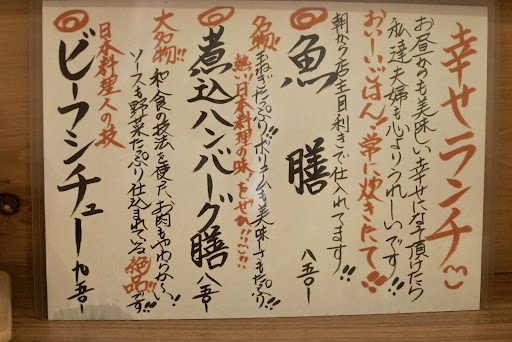 幸せランチ
お昼からも美味しい幸せになって頂けたら
私達夫婦も心よりうれしーいです!!
おいーいごはん!常に炊きたて!!
朝から店主目利きで仕入れてます!!
◎魚膳 八五〇-
名物!!玉ねぎたっぷり!!ボリュームも美味しさもたっぷり
熱い日本料理の味をぜひ!!
◎煮込ハンバーグ膳 八五〇-
大名物!!和食の技法を使用しお肉もやわらかーい
ソースも野菜たっぷり仕込まれている絶品です!!
日本料理人の技
◎ビーフシチュー 九五〇-